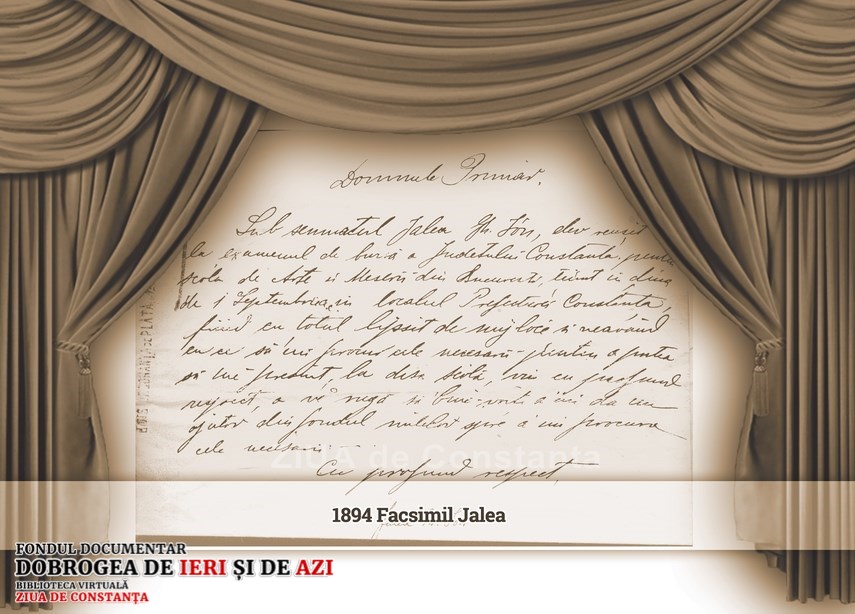 Domnule Primar,
Sub semnatul Jalea Gh. Ión, elev reușit
la examenul de bursă a Judetului Constanta, pentru
scola de Arte si Meserii din Bucuresti, ținut in diua
de 1 Septembrie, in localul Prefecturei Constanta,
fiind cu totul lipsit de mijloce si neavând
cu ce să'mi procur cele necesarii pentru a putea
să mě presint, la disa scólă, viu cu profund
respect, a vě rugă si bine-voiti a'mi da un
ajutor din fondul milelor spre a'mi procura
cele necesarii.
ZIUA de Constanta
Cu profund respect,
1894 Facsimil Jalea
FONDUL DOCUMENTAR
DOBROGEA DE IERI ȘI DE AZI
BIBLIOTECA VIRTUALĂ
ZIUA DE CONSTANȚA